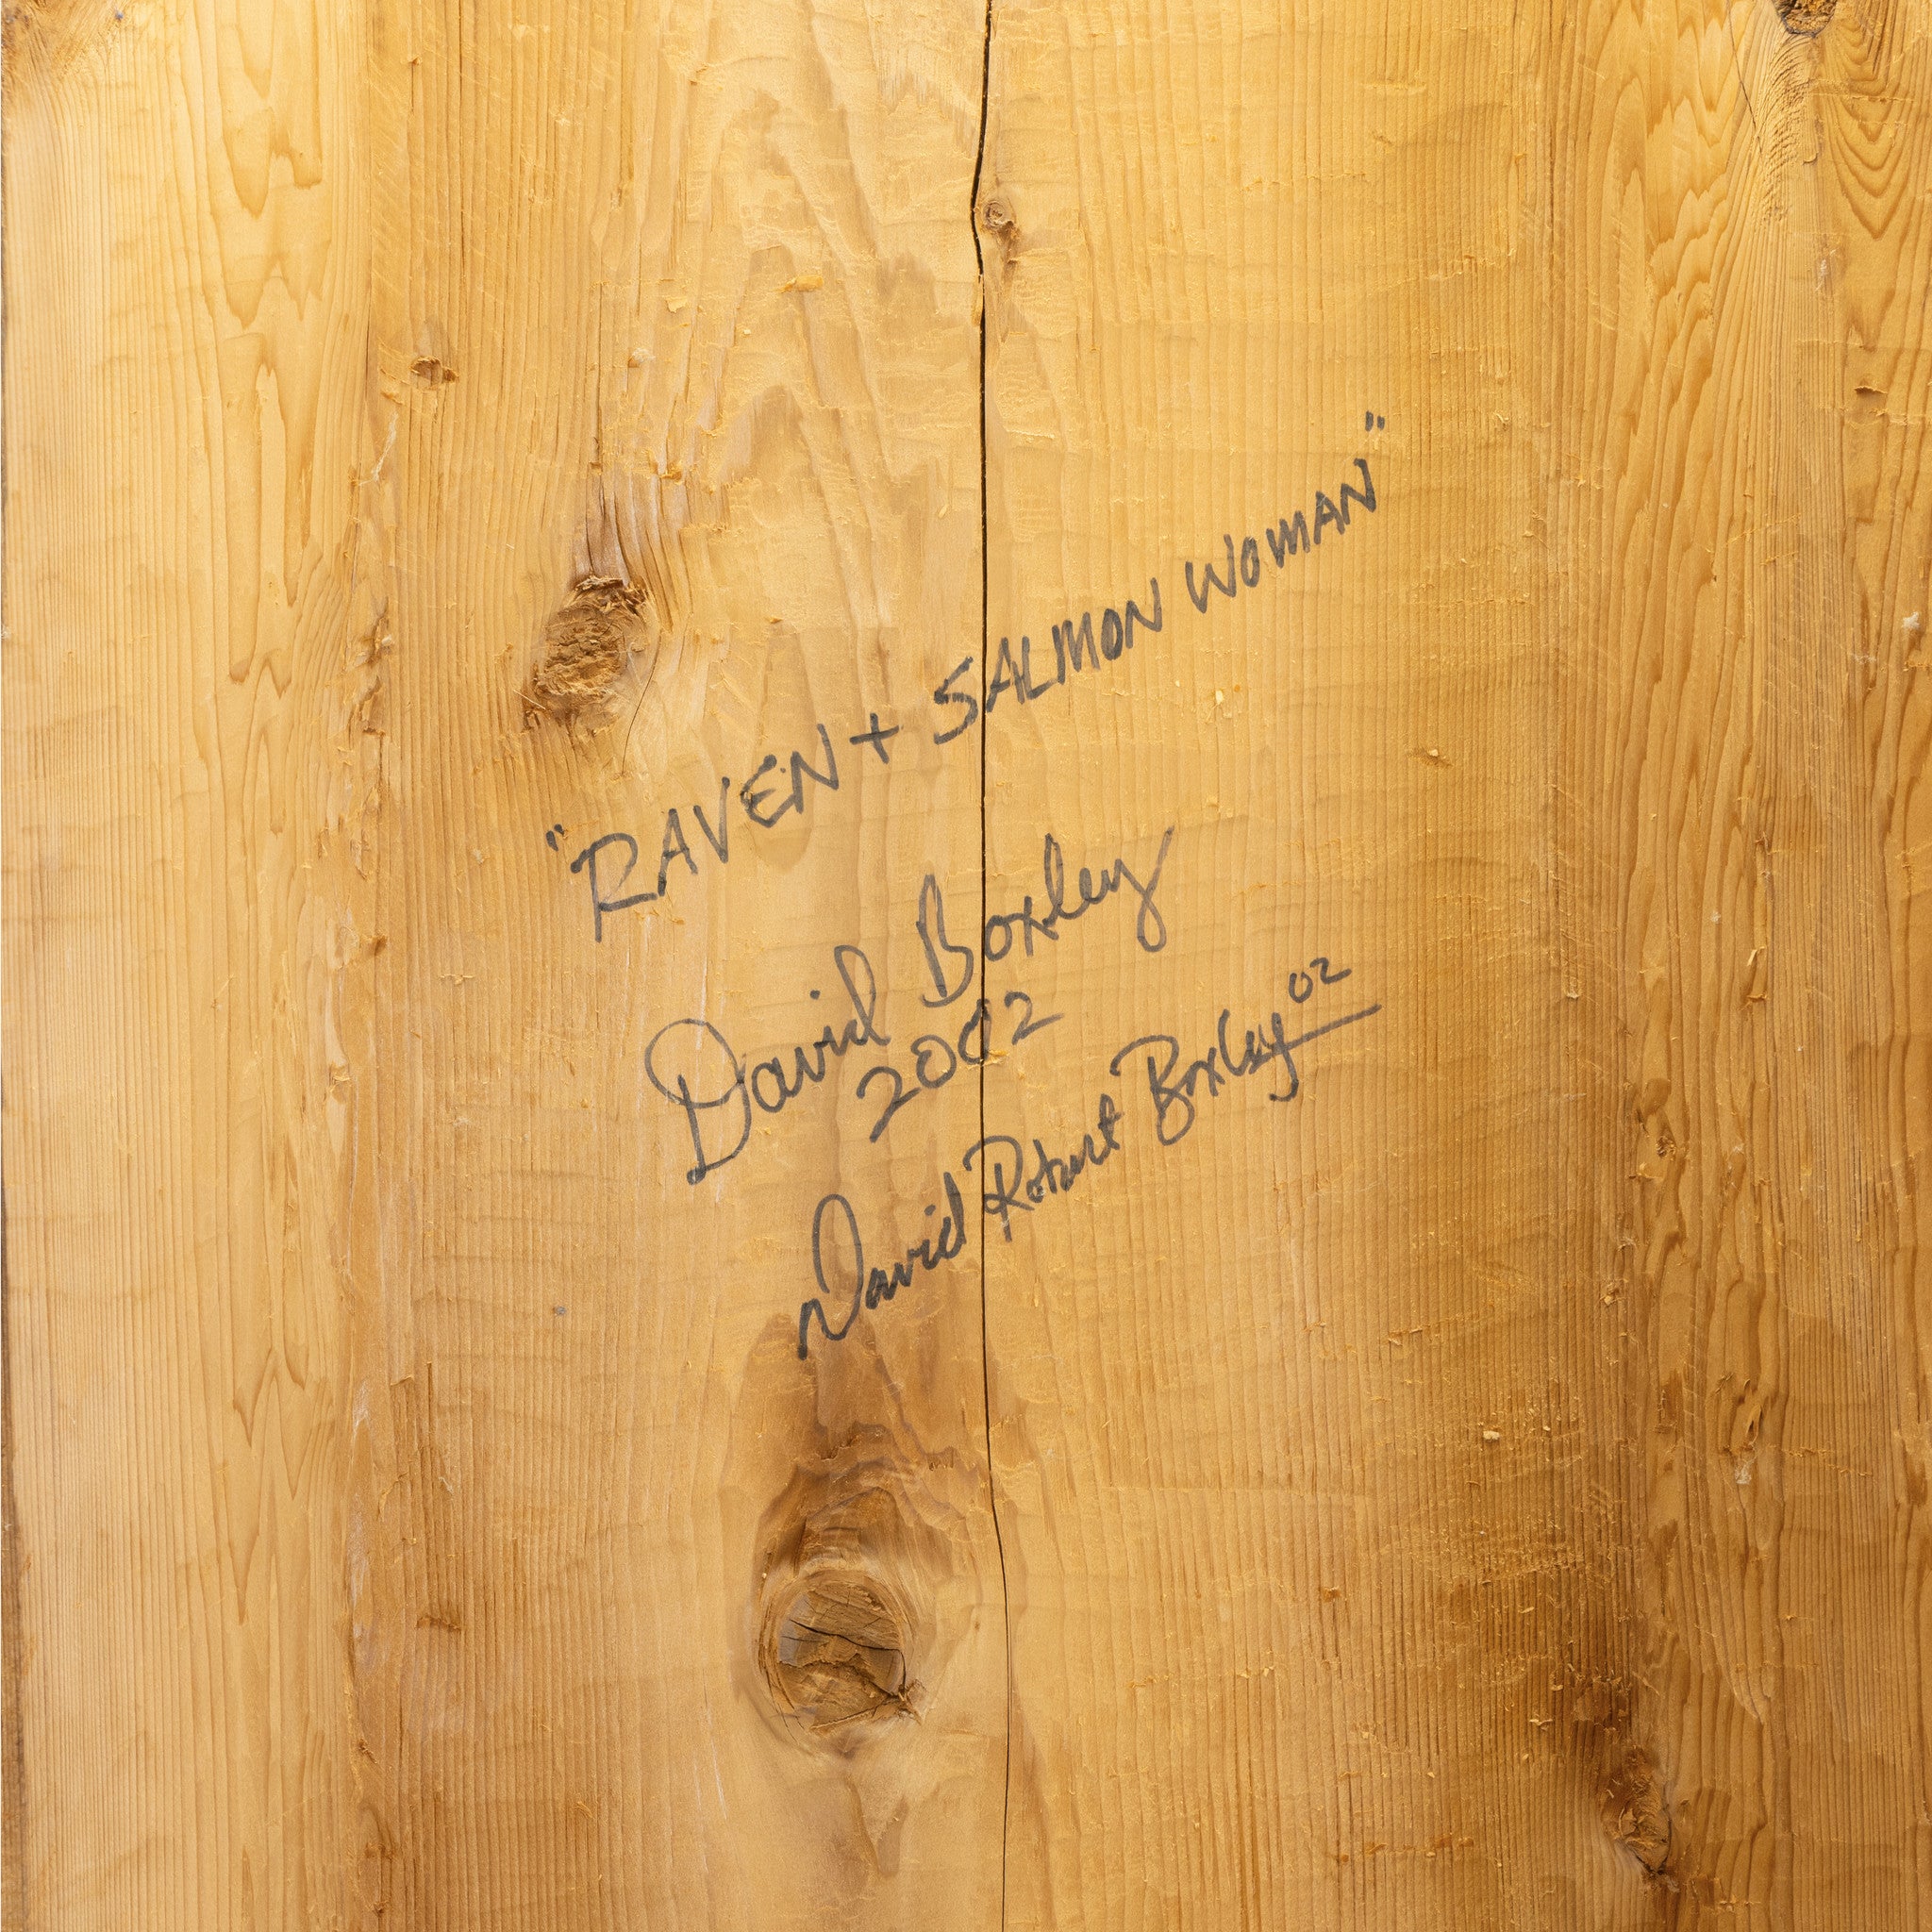 "RAVEN + SALMON WOMAN"
David Boxley
2002
David Robert Boxley 02